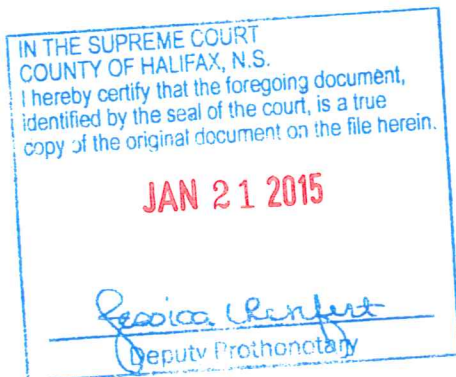 IN THE SUPREME COURT
COUNTY OF HALIFAX, N.S.
I hereby certify that the foregoing document,
identified by the seal of the court, is a true
copy of the original document on the file herein.
JAN 21 2015
Jessica
Deputy Prothonotary